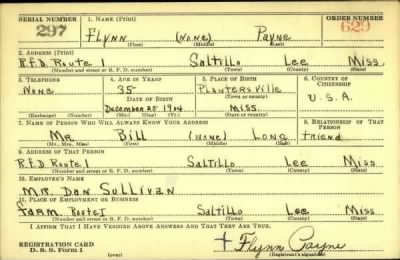 SERIAL NUMBER 1. NAME (Print) ORDER NUMBER
297 FLYNN (NONE) PAYNE 629
(First) (Middle) (Last)
2. ADDRESS (Print)
R.F.D. ROUTE 1 SALTILLO LEE MISS.
(Number and street or R. F. D. number) (Town) (County) (State)
3. TELEPHONE 4. AGE IN YEARS 5. PLACE OF BIRTH 6. COUNTRY OF CITIZENSHIP
NONE 35 PLANTERSVILLE
DATE OF BIRTH (Town or county) U.S.A.
DECEMBER 25 1904 MISS.
(Exchange) (Number) (Mo.) (Day) (Yr.) (State or country)
7. NAME OF PERSON WHO WILL ALWAYS KNOW YOUR ADDRESS 8. RELATIONSHIP OF THAT PERSON
MR. BILL (NONE) LONG friend
(Mr., Mrs., Miss) (First) (Middle) (Last)
9. ADDRESS OF THAT PERSON
R.F.D. ROUTE 1 SALTILLO LEE MISS.
(Number and street or R. F. D. number) (Town) (County) (State)
10. EMPLOYER'S NAME
MR. DAN SULLIVAN
11. PLACE OF EMPLOYMENT OR BUSINESS
FARM ROUTE 1 SALTILLO LEE MISS.
(Number and street or R. F. D. number) (Town) (County) (State)
I AFFIRM THAT I HAVE VERIFIED ABOVE ANSWERS AND THAT THEY ARE TRUE.
REGISTRATION CARD
D. S. S. Form 1 (over) Flynn Payne
(Registrant's signature)